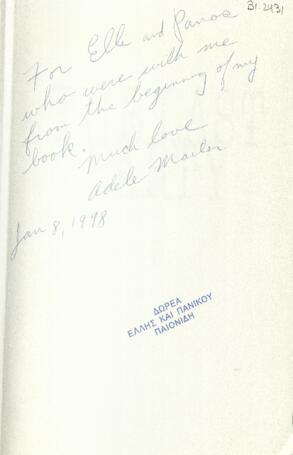 B1.2431
For Elli and Panos
who were with me
from the beginning of my
book.
Much love
Adele Mailer
Jan 8, 1998
ΔΩΡΕΑ
ΕΛΛΗΣ ΚΑΙ ΠΑΝΙΚΟΥ
ΠΑΙΟΝΙΔΗ